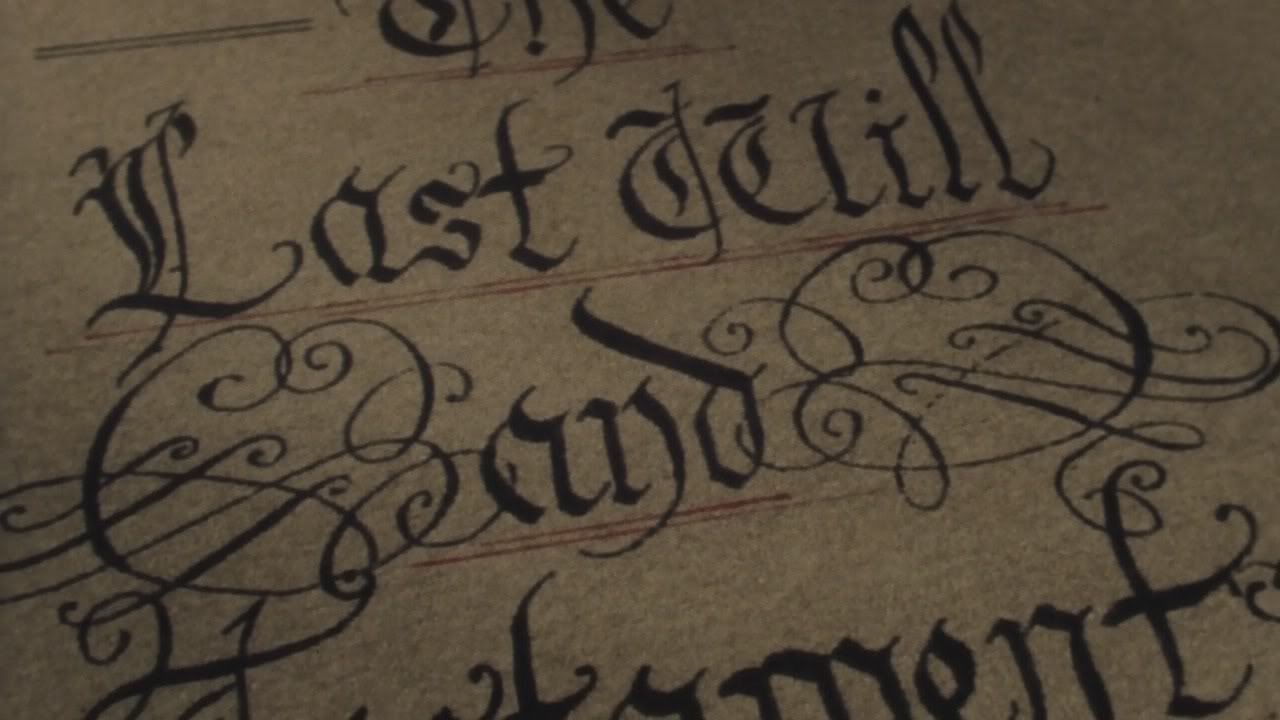 The
Last Will
and
Testament